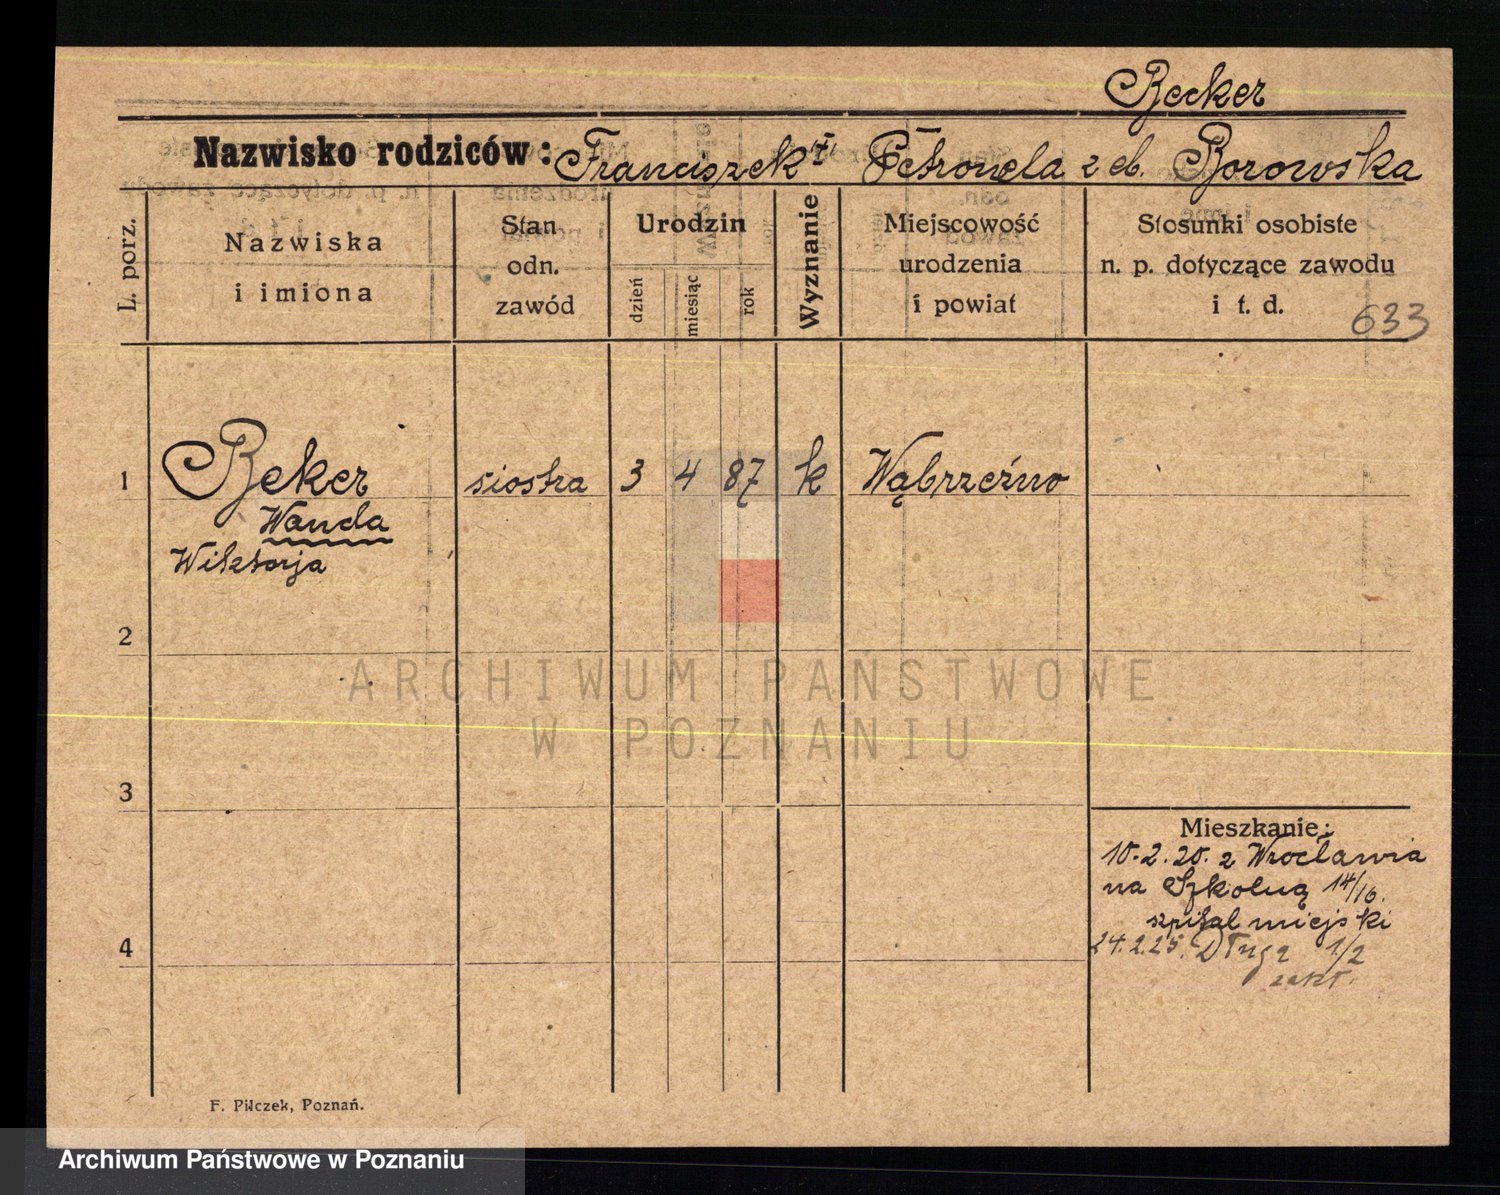 Becker
Nazwisko rodziców: Franciszek "i" Petronela z d. Borowska
L. porz.
Nazwiska
i imiona
Stan
odn.
zawód
Urodzin
dzień
miesiąc
rok
Wyznanie
Miejscowość
urodzenia
i powiat
Stosunki osobiste
n. p. dotyczące zawodu
i t. d.
633
1 Beker siostra 3 4 87 k Wąbrzeźno
Wanda
Wiktorja
2
3
4
ARCHIWUM PAŃSTWOWE
W POZNANIU
Mieszkanie:
10.2.20. z Wrocławia
na Szkolną 14/16.
szpital miejski
24.2.25. Długa 1/2
zakł.
F. Pilczek, Poznań.
Archiwum Państwowe w Poznaniu